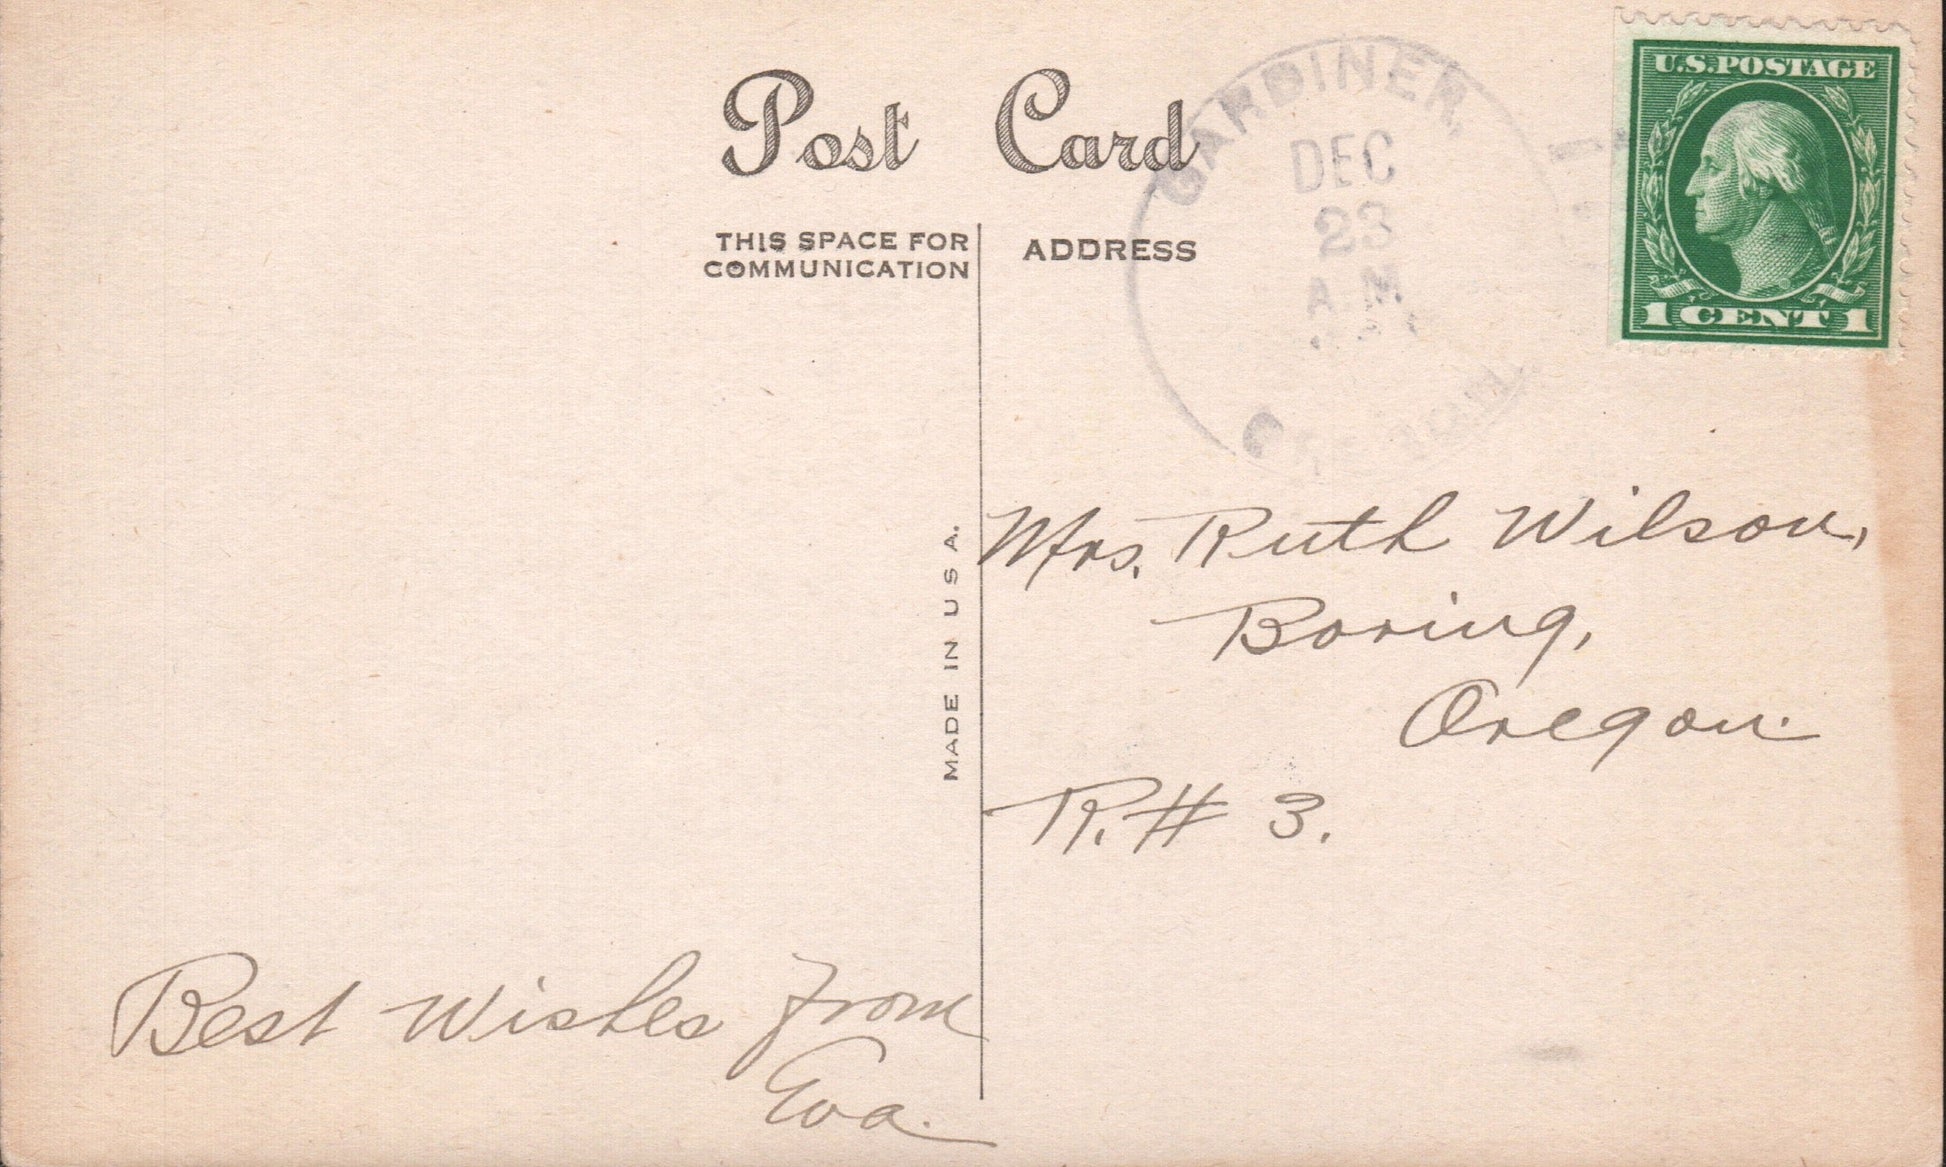 Post Card
THIS SPACE FOR
COMMUNICATION
ADDRESS
GARDINER,
DEC
23
A.M.
U.S.POSTAGE
1 CENT 1
MADE IN U S A.
Mrs. Ruth Wilson,
Boring,
Oregon.
R. # 3.
Best Wishes from
Eva.